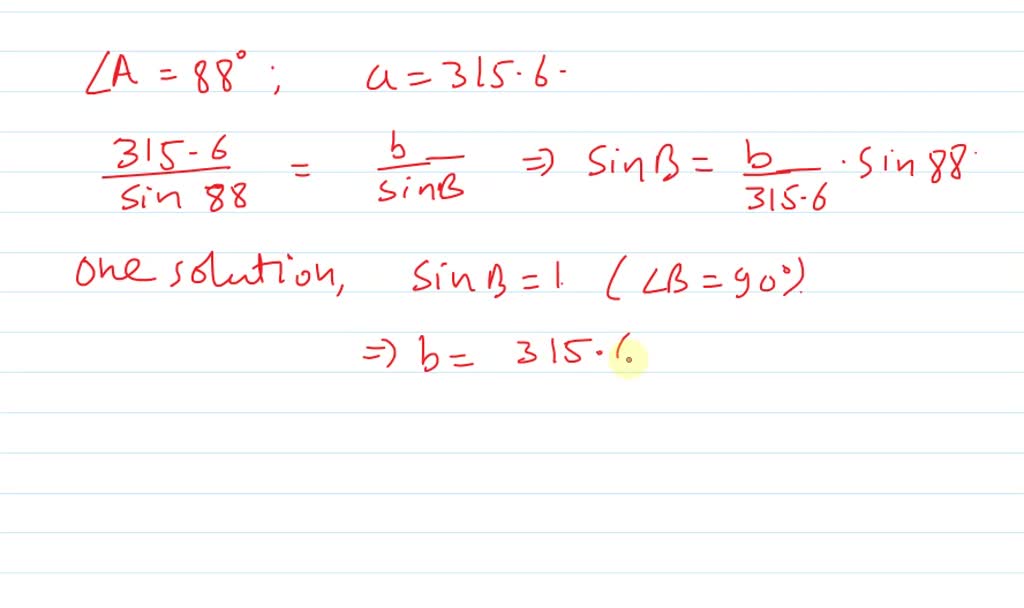 ∠A = 88° ; a = 315.6.
315-6 / sin 88 = b / sinB ⇒ SinB = b / 315.6 . sin 88.
one solution, SinB = 1. (∠B = 90°).
⇒ b = 315.6